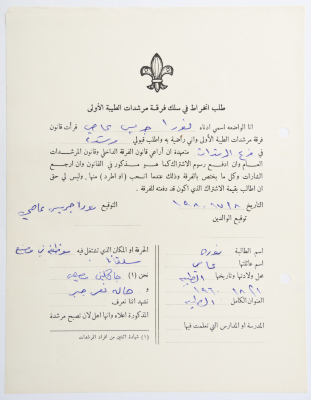 طلب انخراط في سلك فرقة مرشدات الطيبة الأولى
انا الواضعه اسمي ادناه نورا جريس عاصي قرأت قانون
فرقة مرشدات الطيبة الأولى واني راضية به واطلب قبولي مرشدة
في فرع المرشدات متعهدة ان أراعي قانون الفرقة الداخلي وقانون المرشـدات
العـام وان ادفـع رسوم الاشتراك كما هـو مذكور في القانون وان ارجـع
الشارات وكل ما يختص بالفرقة وذلك عندما انسحب (او اطرد) منها . وليس لي حق
ان اطالب بقيمة الاشتراك الذي اكون قد دفعته للفرقة .
التاريخ التوقيع نورا جريس عاصي
توقيع الوالدين
اسم الطالبة نورا
اسم عائلتها عاصي
محل ولادتها وتاريخها الطيبه
العنوان الكامل الطيبه
المدرسة او المدارس التي تعلمت فيها
الحرفة او المكان الذي تشتغل فيه موظفة في
نحن (١)
و
نشهد اننا نعرف
المذكورة اعلاه وانها اهل لان تصبح مرشدة
(١) شهادة اثنتين من افراد المرشدات